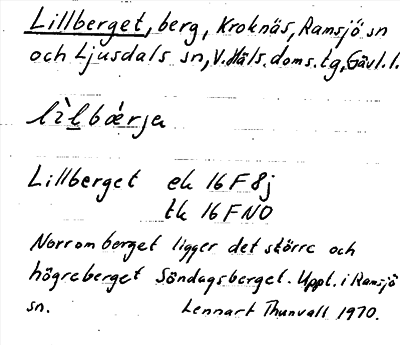 Lillberget, berg, Kroknäs, Ramsjö sn
och Ljusdals sn, V. Häls. doms. tg, Gävl. l.
lìlbǽrja
Lillberget ek 16 F 8j
tk 16 F NO
Norr om berget ligger det större och
högre berget Söndagsberget. Uppt. i Ramsjö
sn. Lennart Thunvall 1970.